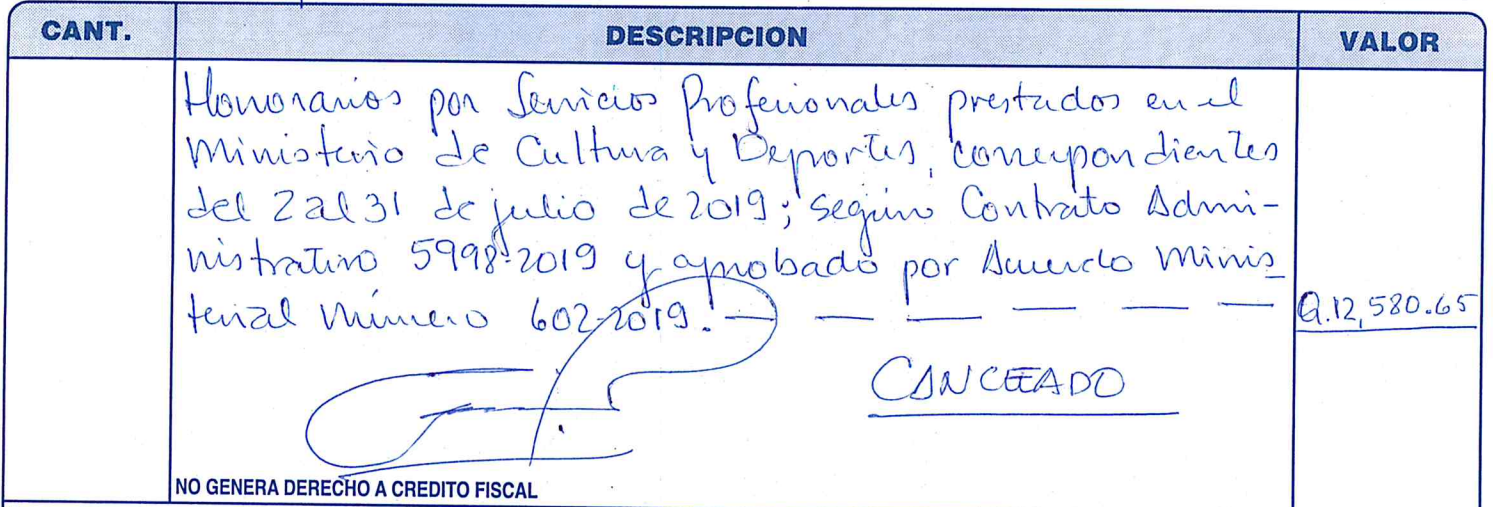 CANT. DESCRIPCION VALOR
Honorarios por Servicios Profesionales prestados en el
Ministerio de Cultura y Deportes, correspondientes
del 2 al 31 de julio de 2019; según Contrato Admi-
nistrativo 5998-2019 y aprobado por Acuerdo Minis
terial Número 602-2019. — — — — — — Q.12,580.65
CANCELADO
NO GENERA DERECHO A CREDITO FISCAL